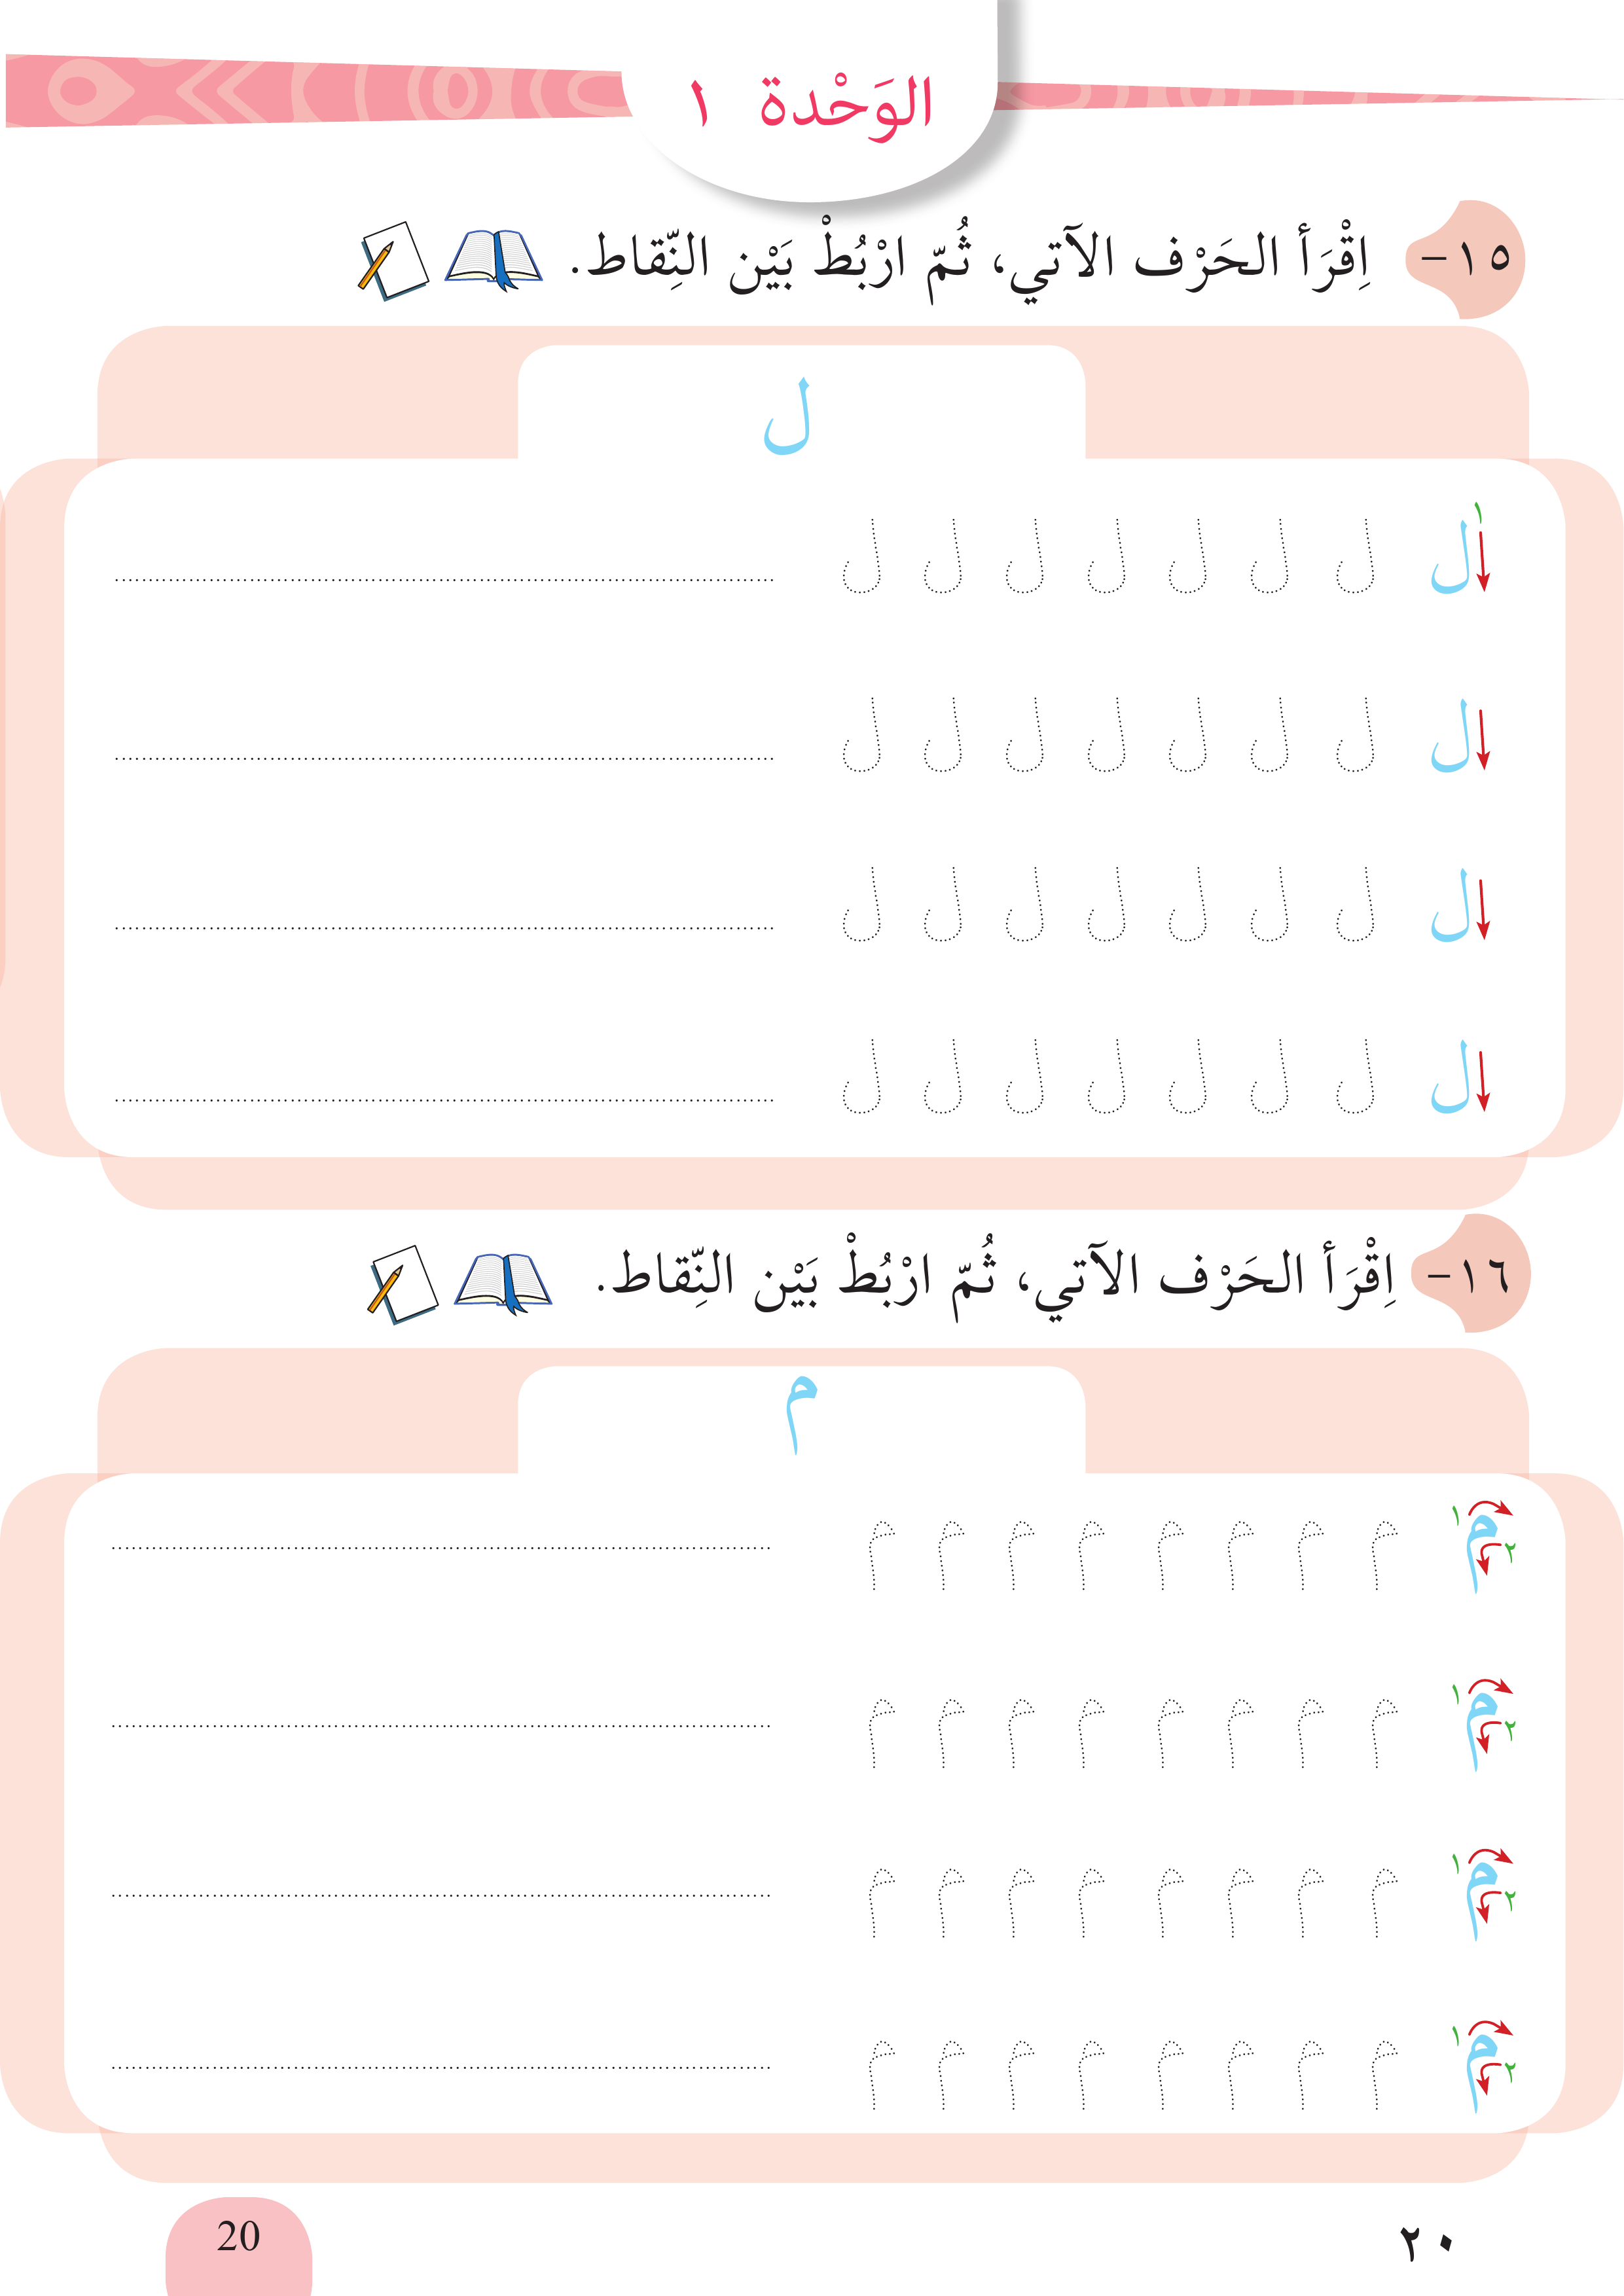 الوَحْدة ١
١٥- اِقْرَأ الحَرْف الآتي، ثُمّ ارْبُطْ بَيْن النِّقاط.
ل
١
ل ل ل ل ل ل ل ل
ل ل ل ل ل ل ل ل
ل ل ل ل ل ل ل ل
ل ل ل ل ل ل ل ل
١٦- اِقْرَأ الحَرْف الآتي، ثُمّ ارْبُطْ بَيْن النِّقاط.
م
١ ٢
م م م م م م م م م
١ ٢
م م م م م م م م م
١ ٢
م م م م م م م م م
١ ٢
م م م م م م م م م
٢٠
20